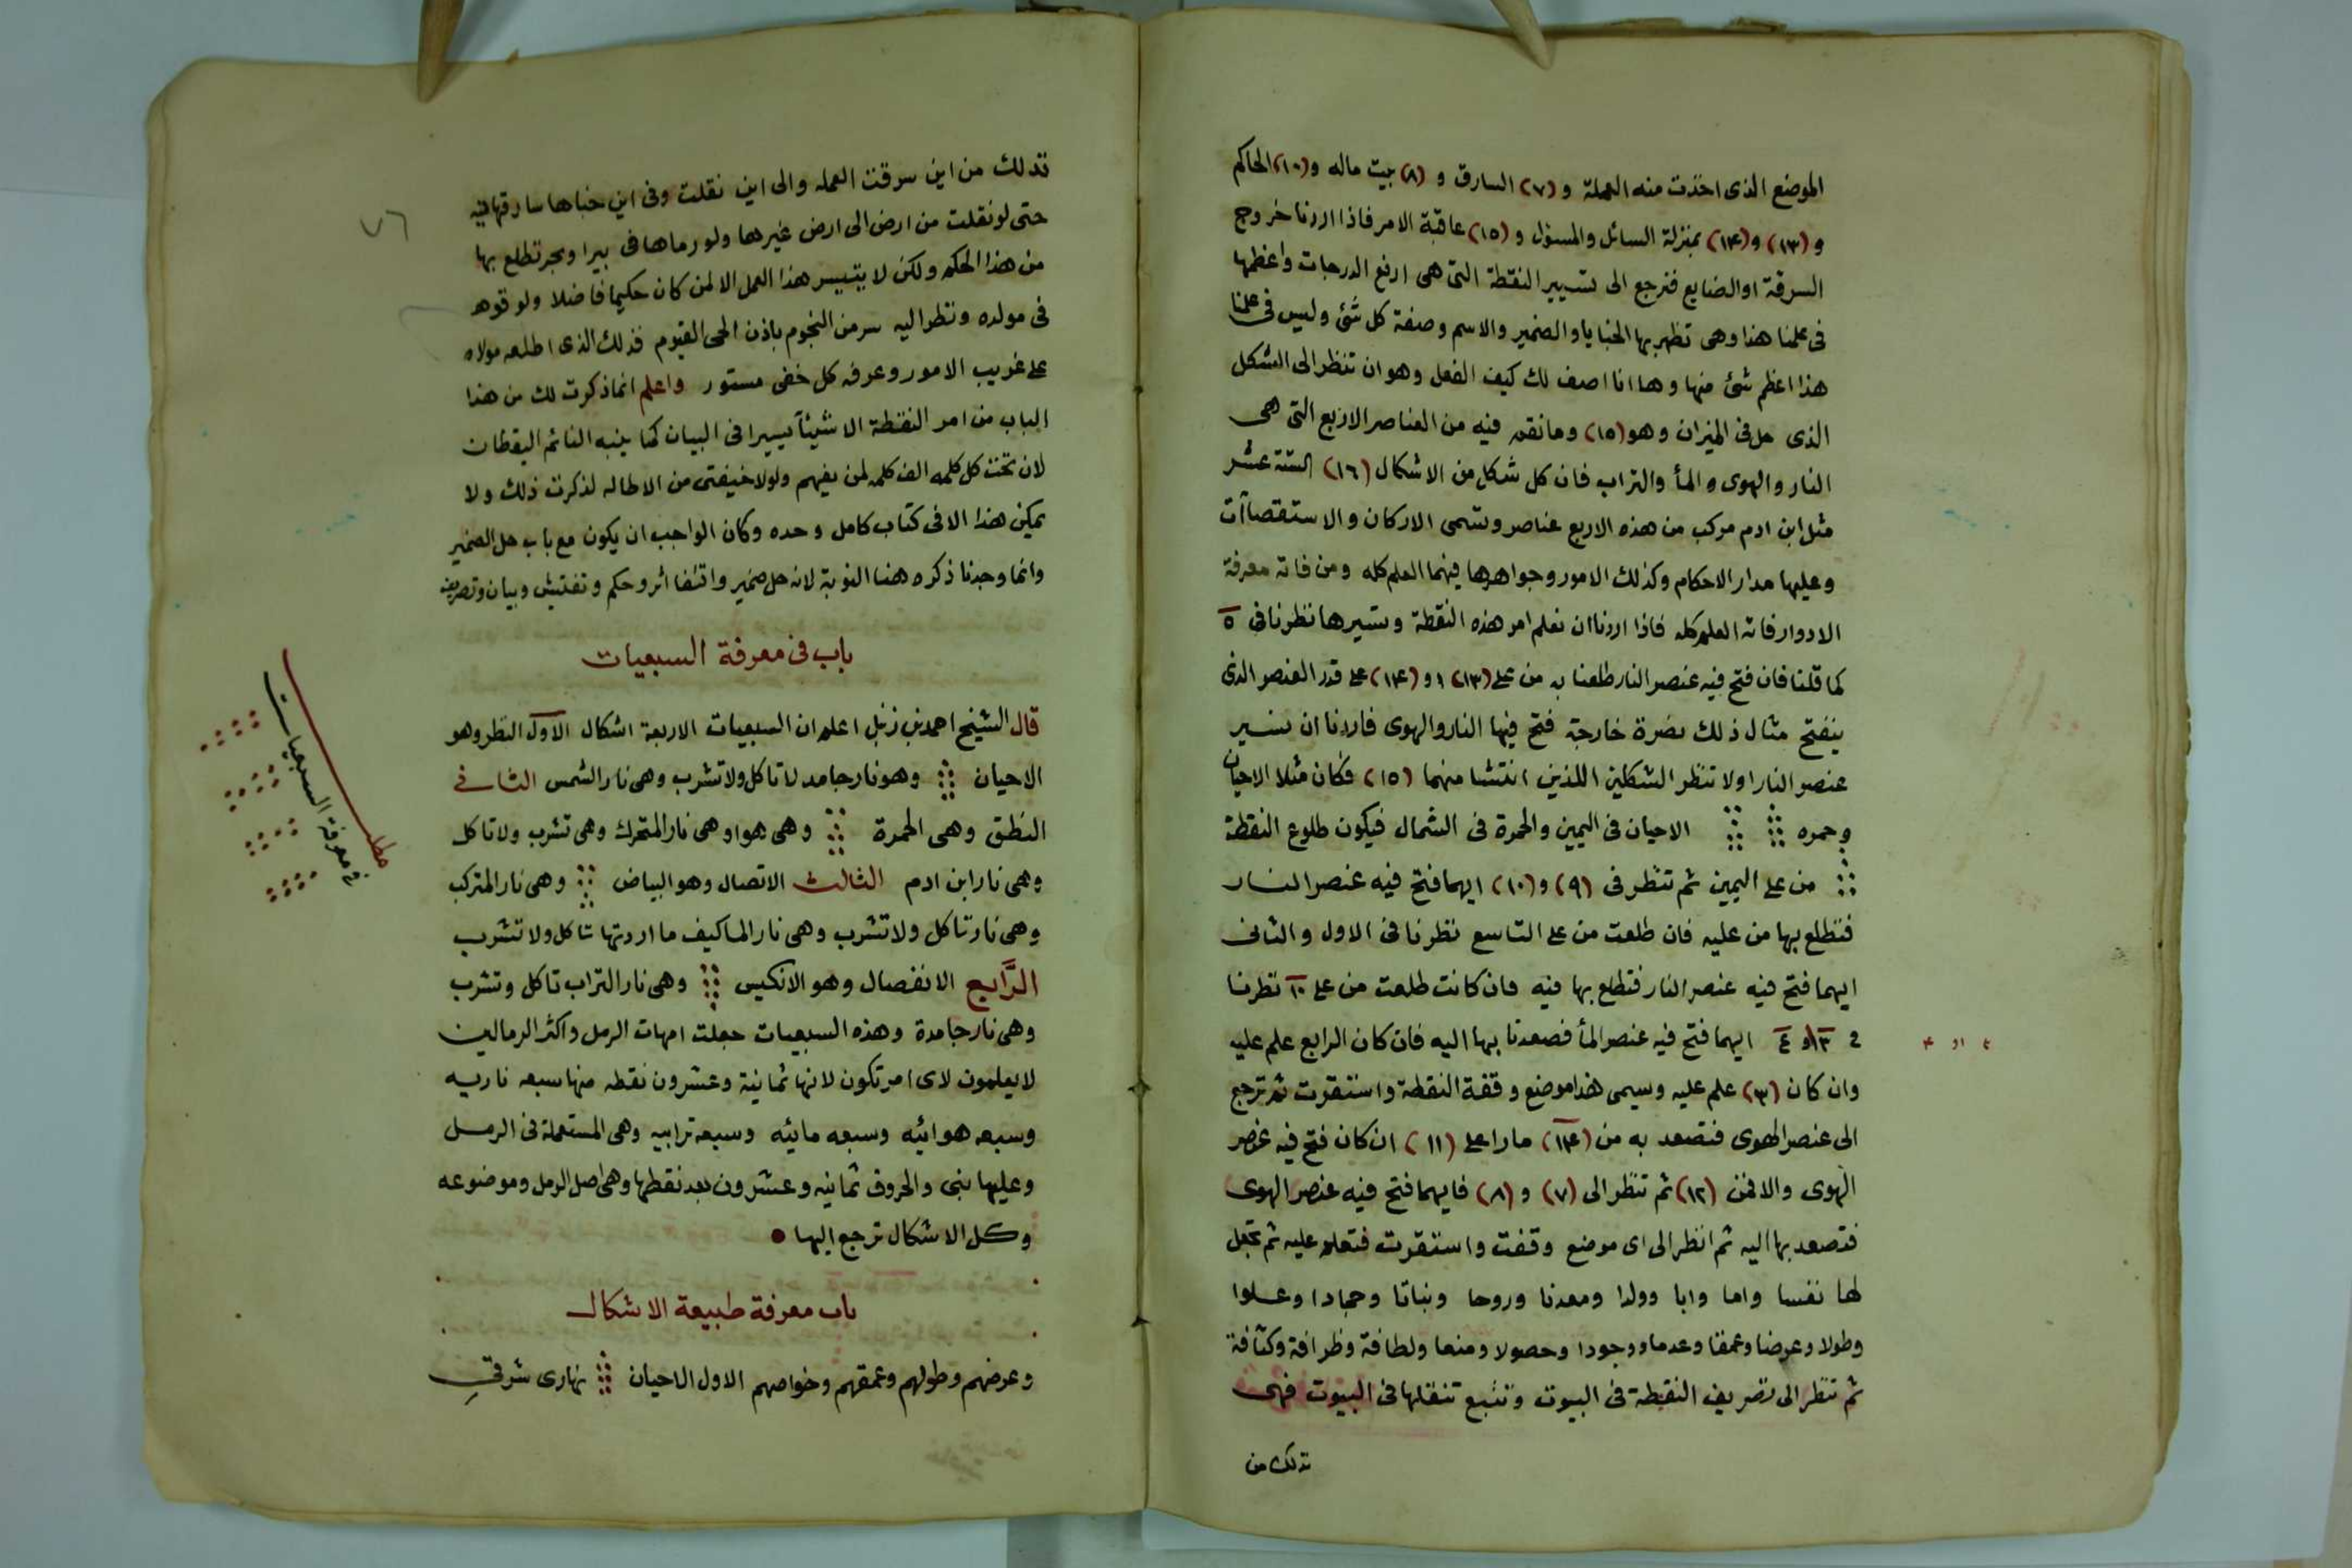 الموضع الذى اخذت منه العملة و (٧) السارق و (٨) بيت ماله و (١٠) الحاكم
و (١٣) و (١٤) بمنزلة السائل والمسؤل و (١٥) عاقبة الامر فاذا اردنا خروج
السرقة او الضايع فنرجع الى تسيير النقطة التى هى ارفع الدرجات واعظمها
فى علمنا هذا وهى تظهر بها الخبايا والضمير والاسم وصفة كل شئ وليس فى علمنا
هذا اعظم شئ منها وها انا اصف لك كيف الفعل وهو ان تنظر الى الشكل
الذى حل فى الميزان وهو (١٥) وما نقص فيه من العناصر الاربع التى هى
النار والهوى والمأ والتراب فان كل شكل من الاشكال (١٦) الستة عشر
مثل ابن ادم مركب من هذه الاربع عناصر وتسمى الاركان والاستقصاآت
وعليها مدار الاحكام وكذلك الامور وجواهرها فيهما العلم كله ومن فاته معرفة
الادوار فاته العلم كله فاذا اردنا ان نعلم امر هذه النقطة وتسيرها نظرنا فى ١٥
كما قلنا فان فتح فيه عنصر النار طلعنا به من على (١٣) او (١٤) على قدر العنصر الذى
ينفتح مثال ذلك نصرة خارجة فتح فيها النار والهوى فاردنا ان نسير
عنصر النار اولا تنظر الشكلين اللذين انتشا منهما (١٥) فكان مثلا الاحيان
وحمره الاحيان فى اليمين والحمرة فى الشمال فيكون طلوع النقطة
من على اليمين ثم تنظر فى (٩) و (١٠) ايهما فتح فيه عنصر النار
فتطلع بها من عليه فان طلعت من على التاسع نظرنا فى الاول والثانى
ايهما فتح فيه عنصر النار فتطلع بها فيه فان كانت طلعت من على ١٠ نظرنا
فى ٣ او ٤ ايهما فتح فيه عنصر المأ فصعدنا بها اليه فان كان الرابع علم عليه
وان كان (٣) علم عليه وسيمى هذا موضع وقفة النقطة واستقرت ثم ترجع
الى عنصر الهوى فتصعد به من (١٤) مارا على (١١) ان كان فتح فيه عنصر
الهوى والا فمن (١٢) ثم تنظر الى (٧) و (٨) فايهما فتح فيه عنصر الهوى
فتصعد بها اليه ثم انظر الى اى موضع وقفت واستقرت فتعلم عليه ثم تجعل
لها نفسا واما وابا وولدا ومعدنا وروحا ونباتا وجمادا وعلوا
وطولا وعرضا وعمقا وعدما ووجودا وحصولا ومنعا ولطافة وظرافة وكثافة
ثم تنظر الى تصريف النقطة فى البيوت وتتبع تنقلها فى البيوت فهى
تدلك من
٧٦
تدلك من اين سرقت العمله والى اين نقلت وفى اين خباها سارقها فيه
حتى لو نقلت من ارض الى ارض غيرها ولو رماها فى بيرا وبحر تطلع بها
من هذا الحكم ولكن لا يتيسر هذا العمل الا لمن كان حكيما فاضلا ولو قوه
فى مولده ونظر اليه سر من النجوم باذن الحى القيوم فذلك الذى اطلعه مولاه
على غريب الامور وعرفه كل خفى مستور واعلم انما ذكرت لك من هذا
الباب من امر النقطة الا شيئاً يسيرا فى البيان كما ينبه النائم اليقظان
لان تحت كل كلمه الف كلمه لمن يفهم ولولا خيفتى من الاطاله لذكرت ذلك ولا
يمكن هذا الا فى كتاب كامل وحده وكان الواجب ان يكون مع باب حل الضمير
وانما وجدنا ذكره هنا النوبة لانه حل ضمير واقتفا اثر وحكم وتفتيش وبيان وتصريف
باب فى معرفة السبعيات
قال الشيخ احمد بن زنبل اعلم ان السبعيات الاربعة اشكال الاول النظر وهو
الاحيان وهو نار جامد لا تاكل ولا تشرب وهى نار الشمس الثانى
النطق وهى الحمرة وهى هوا وهى نار المتحرك وهى تشرب ولا تاكل
وهى نار ابن ادم الثالث الاتصال وهو البياض وهى نار المتركب
وهى نار تاكل ولا تشرب وهى نار الما كيف ما اردتها تاكل ولا تشرب
الرَّابع الانفصال وهو الانكيس وهى نار التراب تاكل وتشرب
وهى نار جامدة وهذه السبعيات جعلت امهات الرمل واكثر الرمالين
لا يعلمون لاى امر تكون لانها ثمانية وعشرون نقطه منها سبعه ناريه
وسبعه هوائيه وسبعه مائيه وسبعه ترابيه وهى المستعملة فى الرمل
وعليها بنى والحروف ثمانيه وعشرون بعد نقطها وهى اصل الرمل وموضوعه
وكل الاشكال ترجع اليها
باب معرفة طبيعة الاشكال
وعرضهم وطولهم وعمقهم وخواصهم الاول الاحيان نهارى شرقى
مطلب
فى معرفة السبعيات